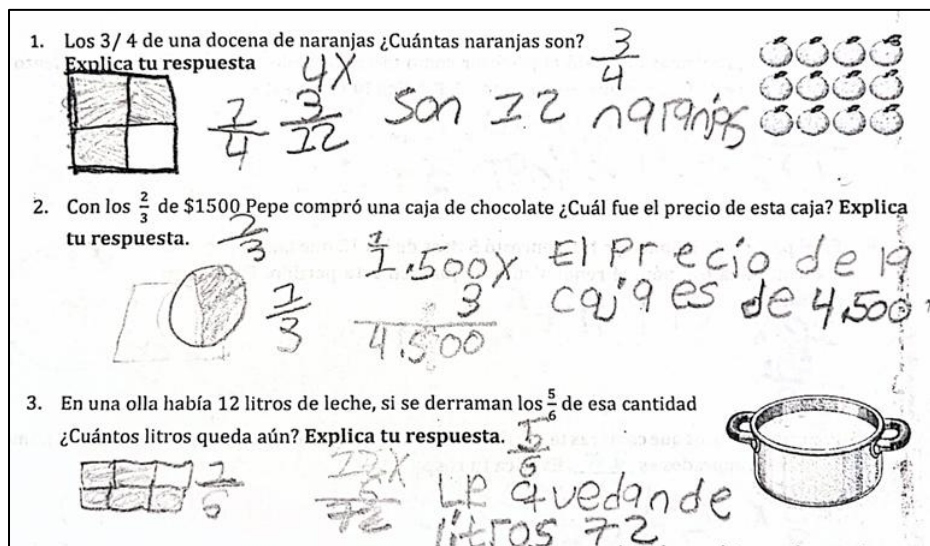 1. Los 3/ 4 de una docena de naranjas ¿Cuántas naranjas son?
3/4
Explica tu respuesta
4X
3
12
1/4
Son 12 naranjas
2. Con los 2/3 de $1500 Pepe compró una caja de chocolate ¿Cuál fue el precio de esta caja? Explica
tu respuesta.
2/3
1/3
1
1.500X
3
4.500
El Precio de la
caja es de 4.500
3. En una olla había 12 litros de leche, si se derraman los 5/6 de esa cantidad
¿Cuántos litros queda aún? Explica tu respuesta.
1/6
12X
72
Le quedan de
litros 72